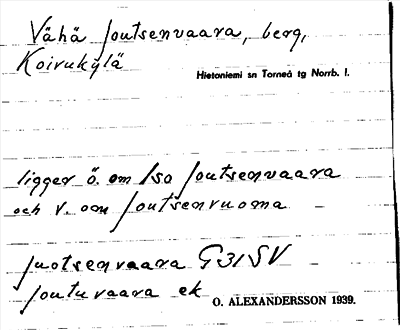 Vähä Joutsenvaara, berg,
Koivukylä
Hietoniemi sn Torneå tg Norrb. l.
ligger ö. om Iso Joutsenvaara
och v. om Joutsenvuoma
Juotsenvaara G31SV
Joutuvaara ek
O. ALEXANDERSSON 1939.